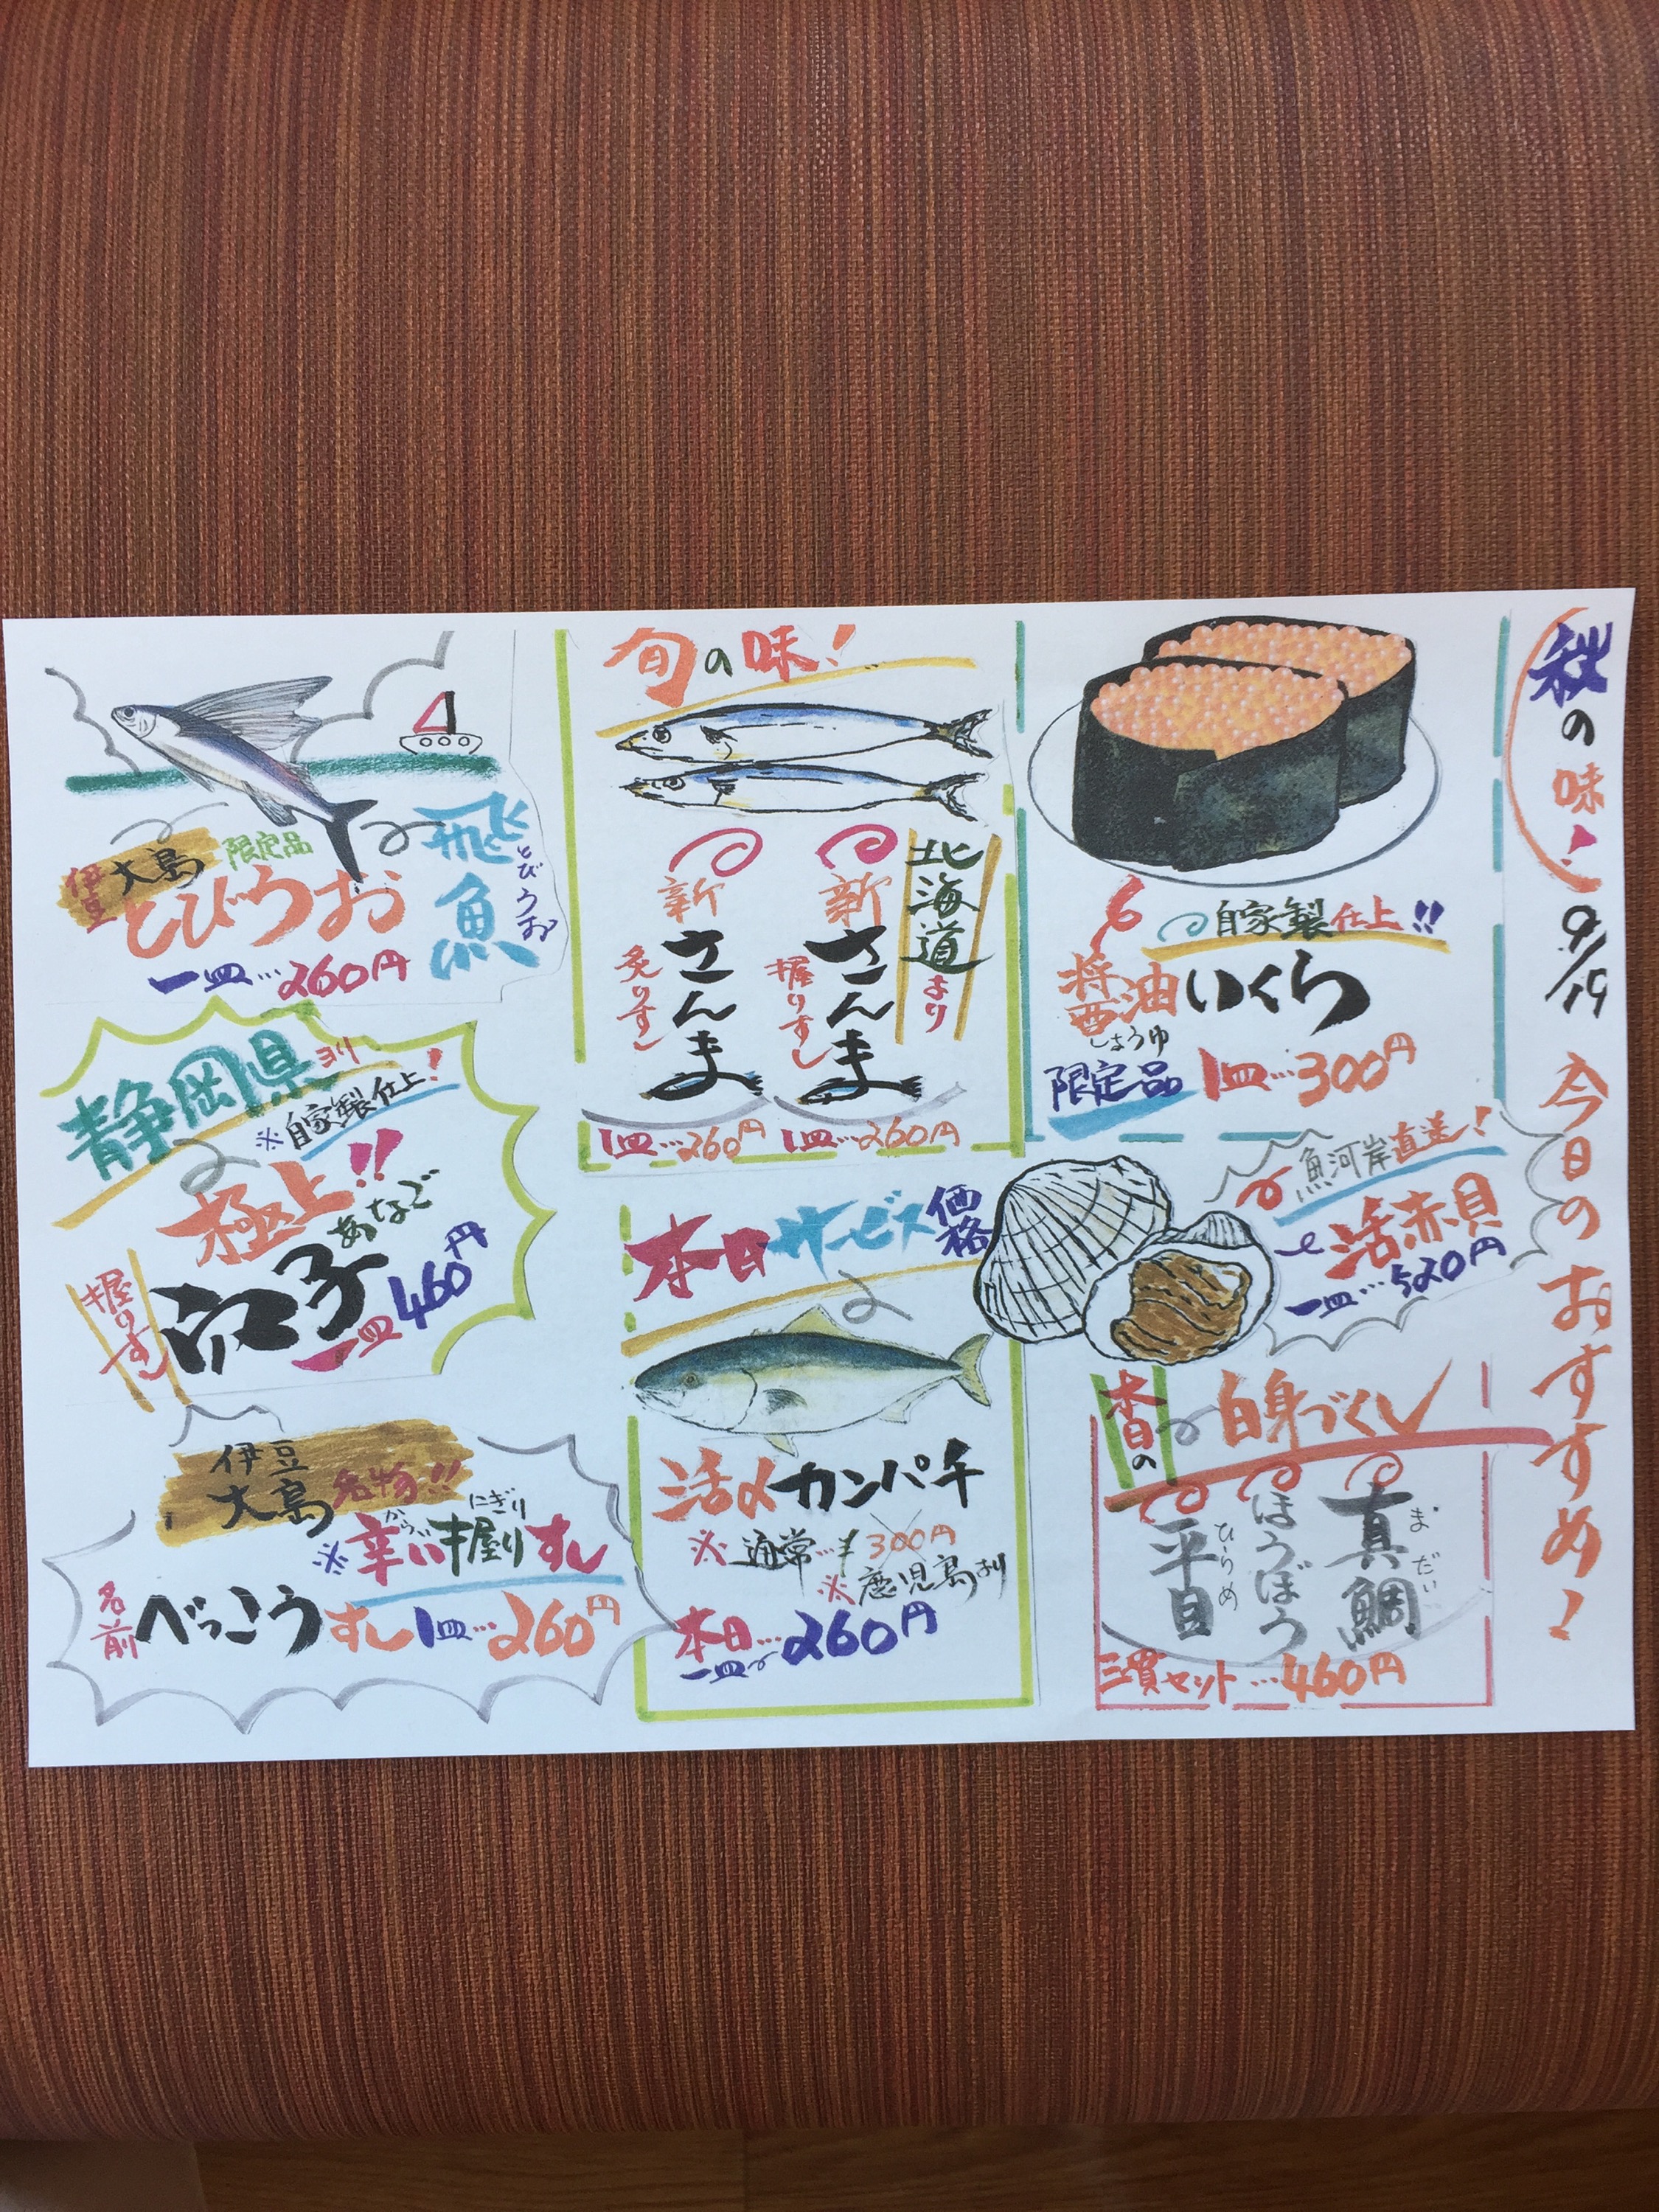 秋の味!
9/19
今日のおすすめ!
自家製仕上!!
醤油いくら
しょうゆ
限定品 1皿…300円
魚河岸直送!
活赤貝
一皿…520円
本日の
白身づくし
真鯛
まだい
ほうぼう
平目
ひらめ
三貫セット…460円
旬の味!
北海道より
新さんま
握りすし
新さんま
炙りすし
1皿…260円 1皿…260円
本日サービス価格
活〆カンパチ
※通常… 300円
※鹿児島より
本日…260円
一皿
飛魚
とびうお
伊豆大島 限定品
とびうお
一皿…260円
静岡県ヨリ
※自家製仕上!
極上!!
あなご
穴子
握りすし
一皿460円
伊豆大島 名物!!
からい にぎり
※辛い握りすし
名前 べっこうすし 1皿…260円